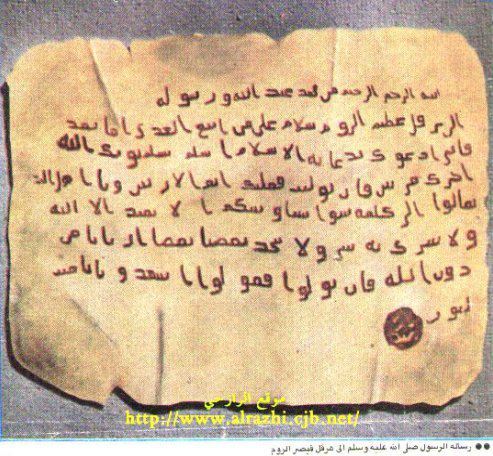 الله الرحمن الرحيم من محمد عبد الله ورسوله
الى هرقل عظيم الروم سلام على من اتبع الهدى اما بعد
فانى ادعوك بدعاية الاسلام اسلم تسلم يوتك الله
اجرك مرتين فان توليت فعليك اثم الاريسيين ويا اهل الكتاب
تعالوا الى كلمة سوا بيننا وبينكم الا نعبد الا الله
ولا نشرك به شيا ولا يتخذ بعضنا بعضا اربابا من
دون الله فان تولوا فقولوا اشهدوا بانا مسلمون
موقع الرازحي
http://www.alrazhi.cjb.net/
●● رسالة الرسول صلى الله عليه وسلم الى هرقل قيصر الروم